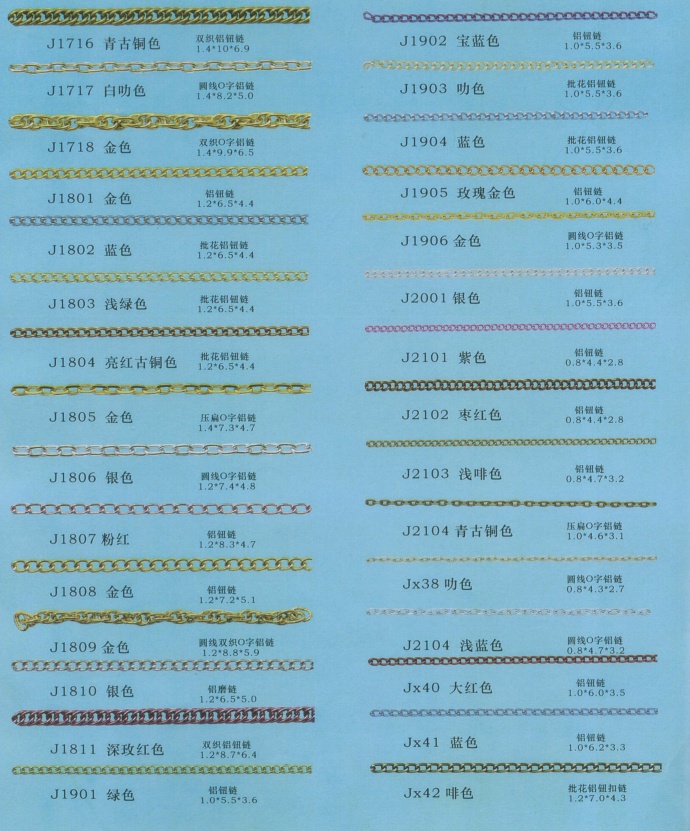 J1716 青古铜色
双织铝钮链
1.4*10*6.9
J1717 白叻色
圆线O字铝链
1.4*8.2*5.0
J1718 金色
双织O字铝链
1.4*9.9*6.5
J1801 金色
铝钮链
1.2*6.5*4.4
J1802 蓝色
批花铝钮链
1.2*6.5*4.4
J1803 浅绿色
批花铝钮链
1.2*6.5*4.4
J1804 亮红古铜色
批花铝钮链
1.2*6.5*4.4
J1805 金色
压扁O字铝链
1.4*7.3*4.7
J1806 银色
圆线O字铝链
1.2*7.4*4.8
J1807 粉红
铝钮链
1.2*8.3*4.7
J1808 金色
铝钮链
1.2*7.2*5.1
J1809 金色
圆线双织O字铝链
1.2*8.8*5.9
J1810 银色
铝磨链
1.2*6.5*5.0
J1811 深玫红色
双织铝钮链
1.2*8.7*6.4
J1901 绿色
铝钮链
1.0*5.5*3.6
J1902 宝蓝色
铝钮链
1.0*5.5*3.6
J1903 叻色
批花铝钮链
1.0*5.5*3.6
J1904 蓝色
批花铝钮链
1.0*5.5*3.6
J1905 玫瑰金色
铝钮链
1.0*6.0*4.4
J1906 金色
圆线O字铝链
1.0*5.3*3.5
J2001 银色
铝钮链
1.0*5.5*3.6
J2101 紫色
铝钮链
0.8*4.4*2.8
J2102 枣红色
铝钮链
0.8*4.4*2.8
J2103 浅啡色
铝钮链
0.8*4.7*3.2
J2104 青古铜色
压扁O字铝链
1.0*4.6*3.1
Jx38 叻色
圆线O字铝链
0.8*4.3*2.7
J2104 浅蓝色
圆线O字铝链
0.8*4.7*3.2
Jx40 大红色
铝钮链
1.0*6.0*3.5
Jx41 蓝色
铝钮链
1.0*6.2*3.3
Jx42 啡色
批花铝钮扣链
1.2*7.0*4.3